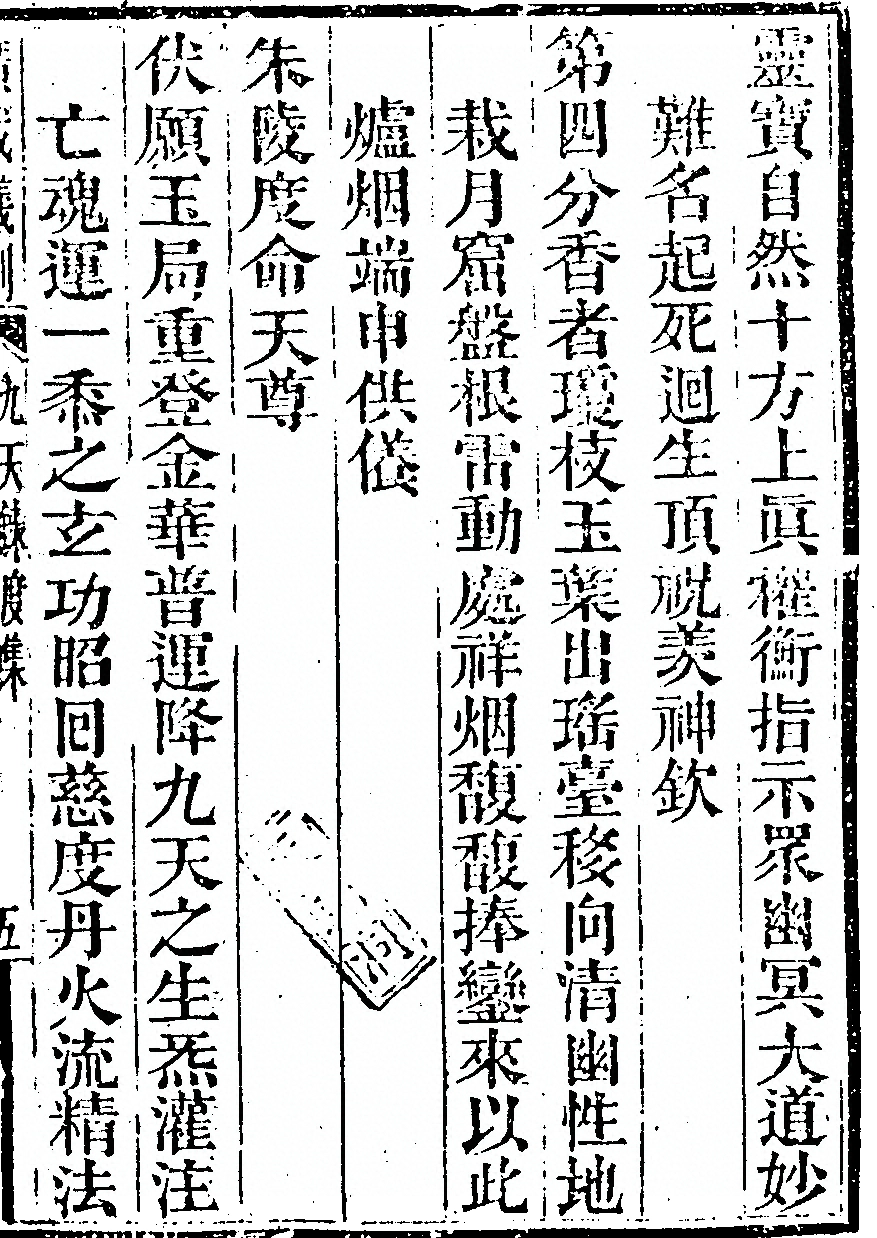 靈寶自然十方上眞權衡指示眾幽冥大道妙
難名起死迴生頂祝羙神欽
第四分香者瓊枝玉葉出瑤臺移向清幽性地
栽月窟盤根雷動處祥烟馥馥捧鑾來以此
爐烟端申供養
朱陵度命天尊
伏願玉局重登金華普運降九天之生炁灌注
亡魂運一黍之玄功昭回慈度丹火流精法
九天鍊度集
五